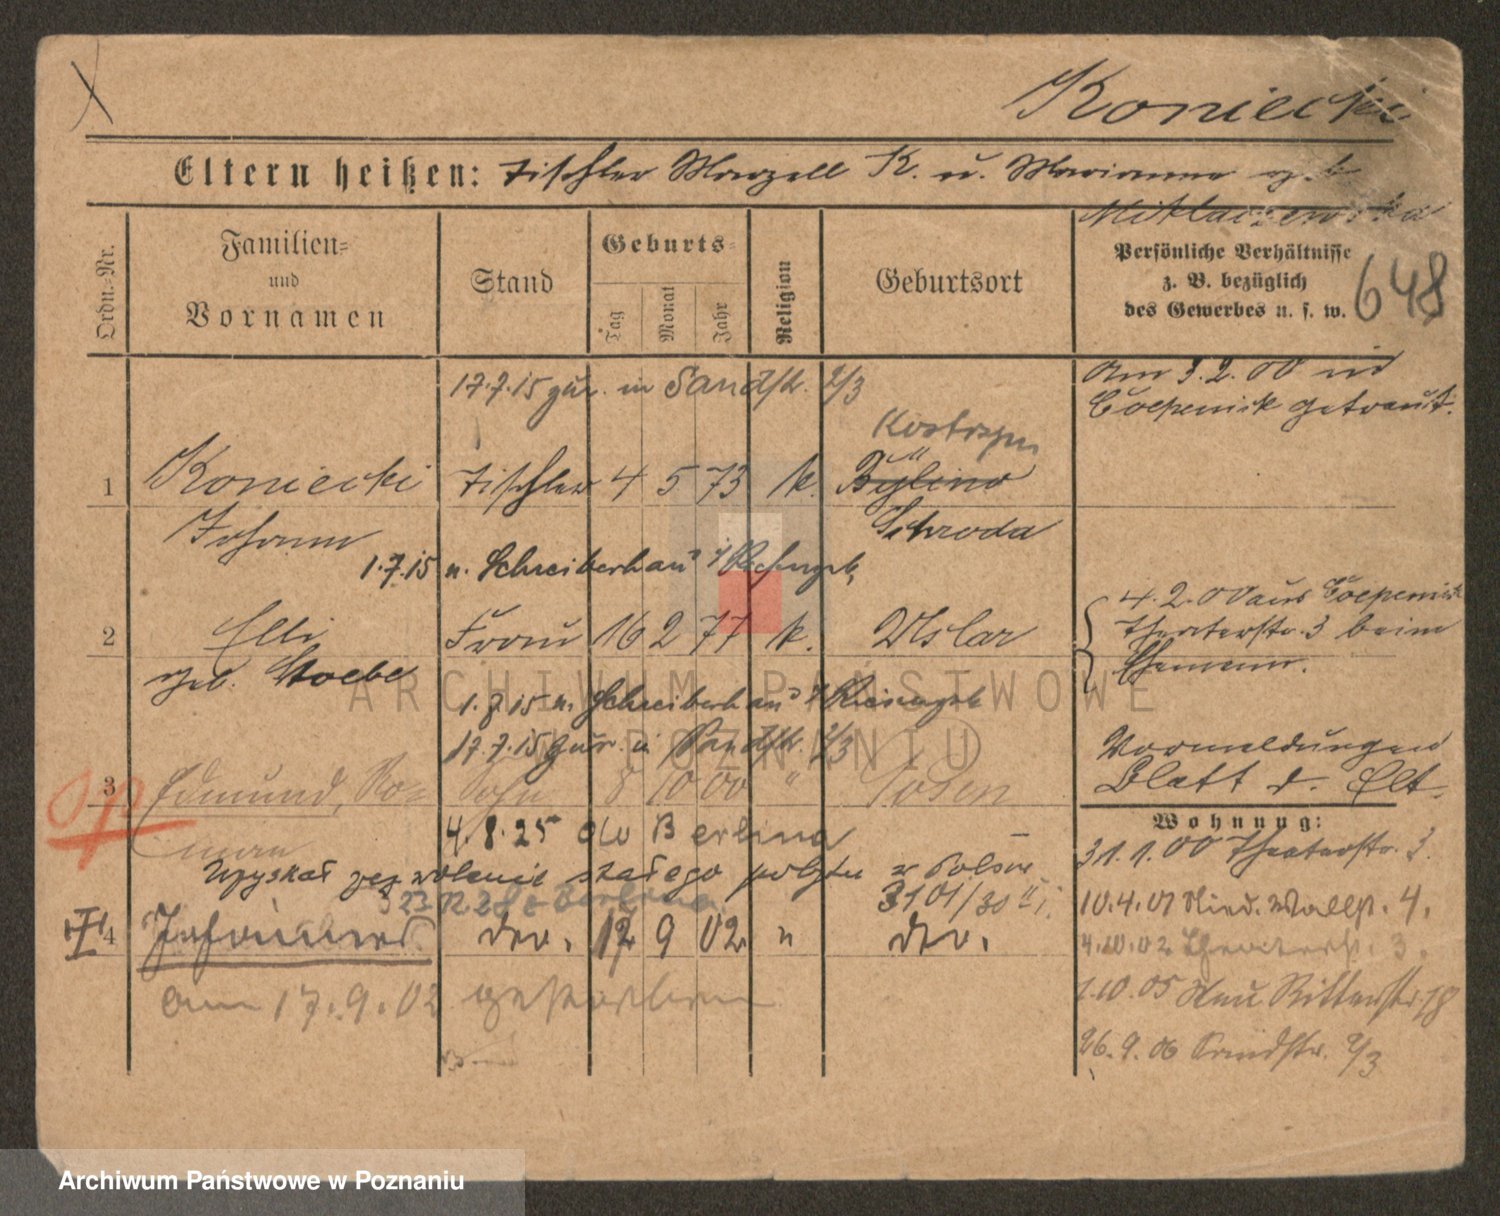 Koniecki
Eltern heißen: Tischler Marzell K. u. Marianna geb.
Miklaszewska
Ordn.-Nr.
Familien-
und
Vornamen
Stand
Geburts-
Tag
Monat
Jahr
Religion
Geburtsort
Persönliche Verhältnisse
z. B. bezüglich
des Gewerbes u. s. w.
648
17.7.15 zur. in Sandstr. 2/3
Am 3.2.00 in
Coepenick getraut.
Kostrzyn
1 Koniecki Tischler 4 5 73 k. Bylino
Johann Schroda
1.7.15 n. Schreiberhau i/Riesengeb.
4.2.00 aus Coepenick
Theaterstr. 3 beim
Ehemann.
2 Elli Frau 16 2 77 k. Uslar
geb. Stoebe
1.7.15 n. Schreiberhau i/Riesengeb
17.7.15 zur. in Sandstr. 2/3
Vormeldungen
Blatt d. Elt.
3 Edmund, Ro- Sohn 8 10 00 " Posen
man
4.8.25 do Berlina
Uzyskał zezwolenie stałego pobytu w Polsce
23.12.28 z Berlina
3101/30
4 Johannes der. 12 9 02 " der.
am 17.9.02 gestorben
Wohnung:
31.1.00 Theaterstr. 3.
10.4.01 Nied. Wallstr. 4.
4.10.02 Theaterstr. 3.
1.10.05 Neu Ritterstr. 18
26.9.06 Sandstr. 2/3
ARCHIWUM PAŃSTWOWE
W POZNANIU
Archiwum Państwowe w Poznaniu